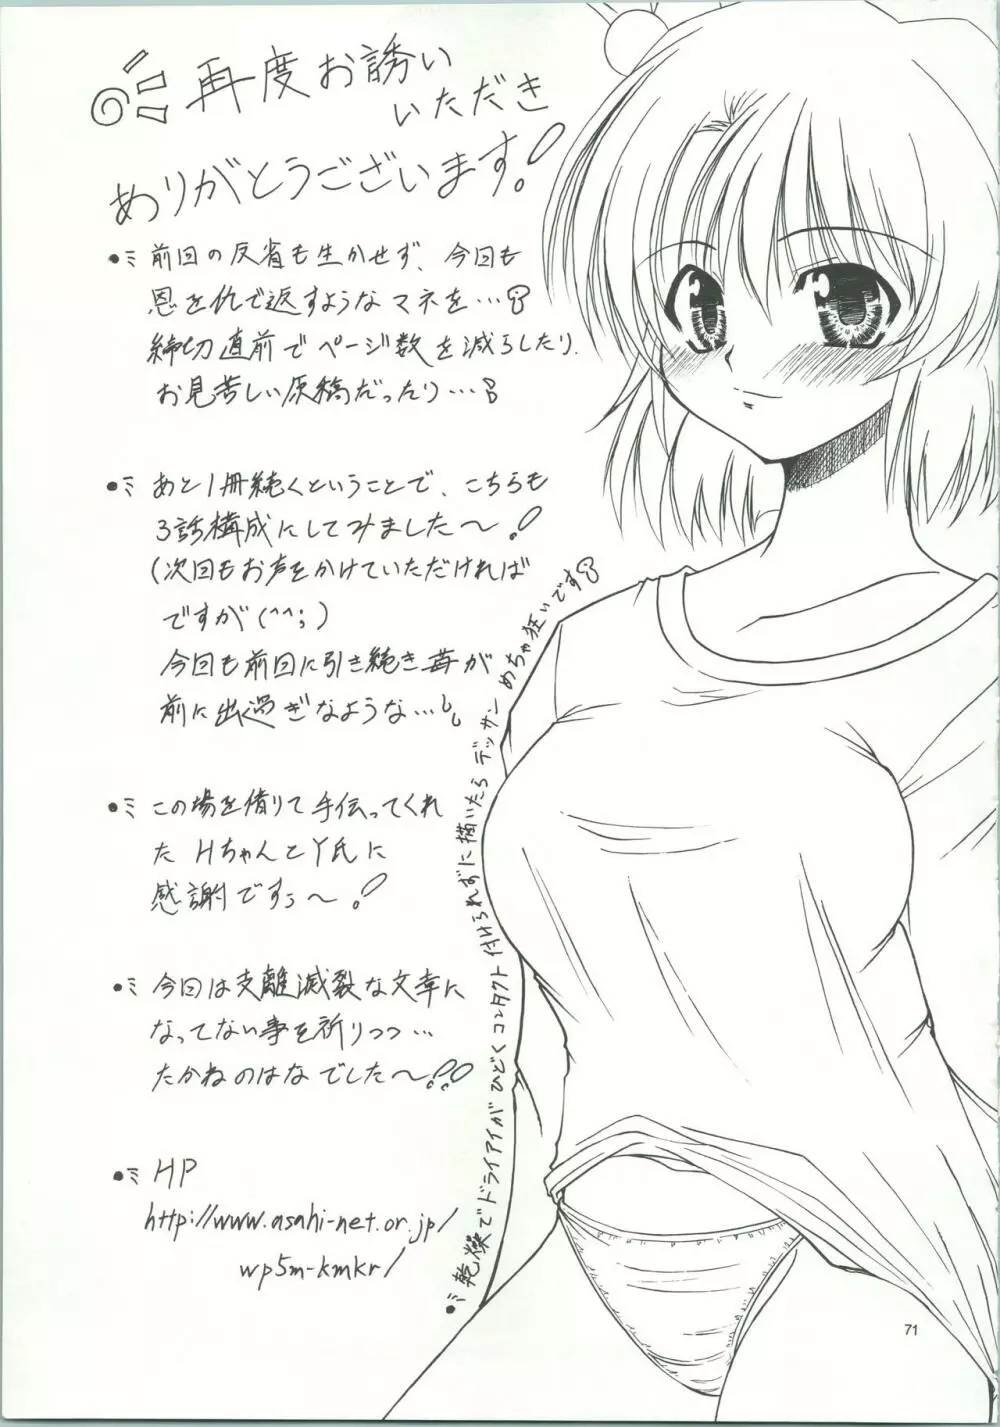 再度お誘い
いただき
ありがとうございます!
前回の反省も生かせず、今回も
恩を仇で返すようなマネを…
締切直前でページ数を減らしたり、
お見苦しい原稿だったり…
あと1冊続くということで、こちらも
3話構成にしてみました〜!
(次回もお声をかけていただければ
ですが(^^;)
今回も前回に引き続き苺が
前に出過ぎなような…
この場を借りて手伝ってくれ
た HちゃんとY氏に
感謝ですぅ〜!
今回は支離滅裂な文章に
なってない事を祈りつつ…
たかねのはなでした〜!!
HP
http://www.asahi-net.or.jp/
wp5m-kmkr/
乾燥でドライアイがひどくコンタクト付けられずに描いたらデッサンめちゃ狂いです
71